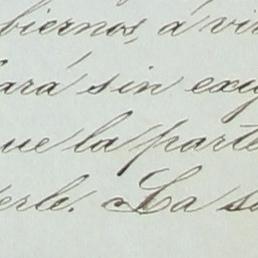 biernos, á vi
ará sin exig
ue la parte
erle. La s